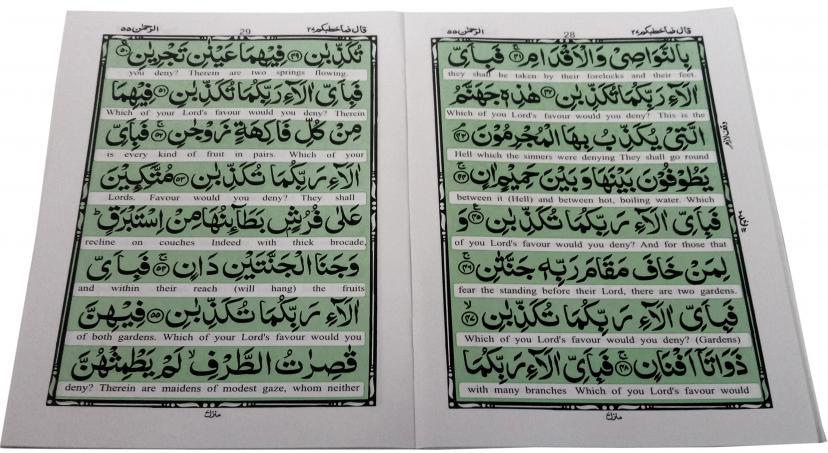 قال فما خطبكم ٢٧ 28 الرحمٰن ٥٥
بِالنَّوَاصِيْ وَالْاَقْدَامِ ﴿٤١﴾ فَبِاَيِّ
they shall be taken by their forelocks and their feet.
اٰلَآءِ رَبِّكُمَا تُكَذِّبٰنِ ﴿٤٢﴾ هٰذِهٖ جَهَنَّمُ
Which of you Lord's favour would you deny? This is the
الَّتِيْ يُكَذِّبُ بِهَا الْمُجْرِمُوْنَ ﴿٤٣﴾
Hell which the sinners were denying They shall go round
يَطُوْفُوْنَ بَيْنَهَا وَبَيْنَ حَمِيْمٍ اٰنٍ ﴿٤٤﴾
between it (Hell) and between hot, boiling water. Which
فَبِاَيِّ اٰلَآءِ رَبِّكُمَا تُكَذِّبٰنِ ﴿٤٥﴾ وَ
of you Lord's favour would you deny? And for those that
لِمَنْ خَافَ مَقَامَ رَبِّهٖ جَنَّتٰنِ ﴿٤٦﴾
fear the standing before their Lord, there are two gardens.
فَبِاَيِّ اٰلَآءِ رَبِّكُمَا تُكَذِّبٰنِ ﴿٤٧﴾
Which of you Lord's favour would you deny? (Gardens)
ذَوَاتَآ اَفْنَانٍ ﴿٤٨﴾ فَبِاَيِّ اٰلَآءِ رَبِّكُمَا
with many branches Which of you Lord's favour would
قال فما خطبكم ٢٧ 29 الرحمٰن ٥٥
تُكَذِّبٰنِ ﴿٤٩﴾ فِيْهِمَا عَيْنٰنِ تَجْرِيٰنِ ﴿٥٠﴾
you deny? Therein are two springs flowing.
فَبِاَيِّ اٰلَآءِ رَبِّكُمَا تُكَذِّبٰنِ ﴿٥١﴾ فِيْهِمَا
Which of your Lord's favour would you deny? Therein
مِنْ كُلِّ فَاكِهَةٍ زَوْجٰنِ ﴿٥٢﴾ فَبِاَيِّ
is every kind of fruit in pairs. Which of your
اٰلَآءِ رَبِّكُمَا تُكَذِّبٰنِ ﴿٥٣﴾ مُتَّكِـِٕيْنَ
Lords. Favour would you deny? They shall
عَلٰى فُرُشٍۭ بَطَآئِنُهَا مِنْ اِسْتَبْرَقٍ ؕ
recline on couches Indeed with thick brocade,
وَجَنَا الْجَنَّتَيْنِ دَانٍ ﴿٥٤﴾ فَبِاَيِّ
and within their reach (will hang) the fruits
اٰلَآءِ رَبِّكُمَا تُكَذِّبٰنِ ﴿٥٥﴾ فِيْهِنَّ
of both gardens. Which of your Lord's favour would you
قٰصِرٰتُ الطَّرْفِ ۙ لَمْ يَطْمِثْهُنَّ
deny? Therein are maidens of modest gaze, whom neither